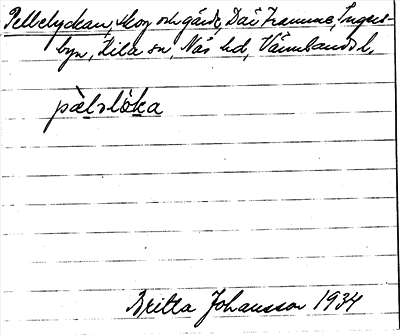 Pellelyckan, skog och gärde, Där framme, Ingers-
byn, Kila sn, Näs hd, Värmlands l.
pàlslö̀ka
Britta Johansson 1934